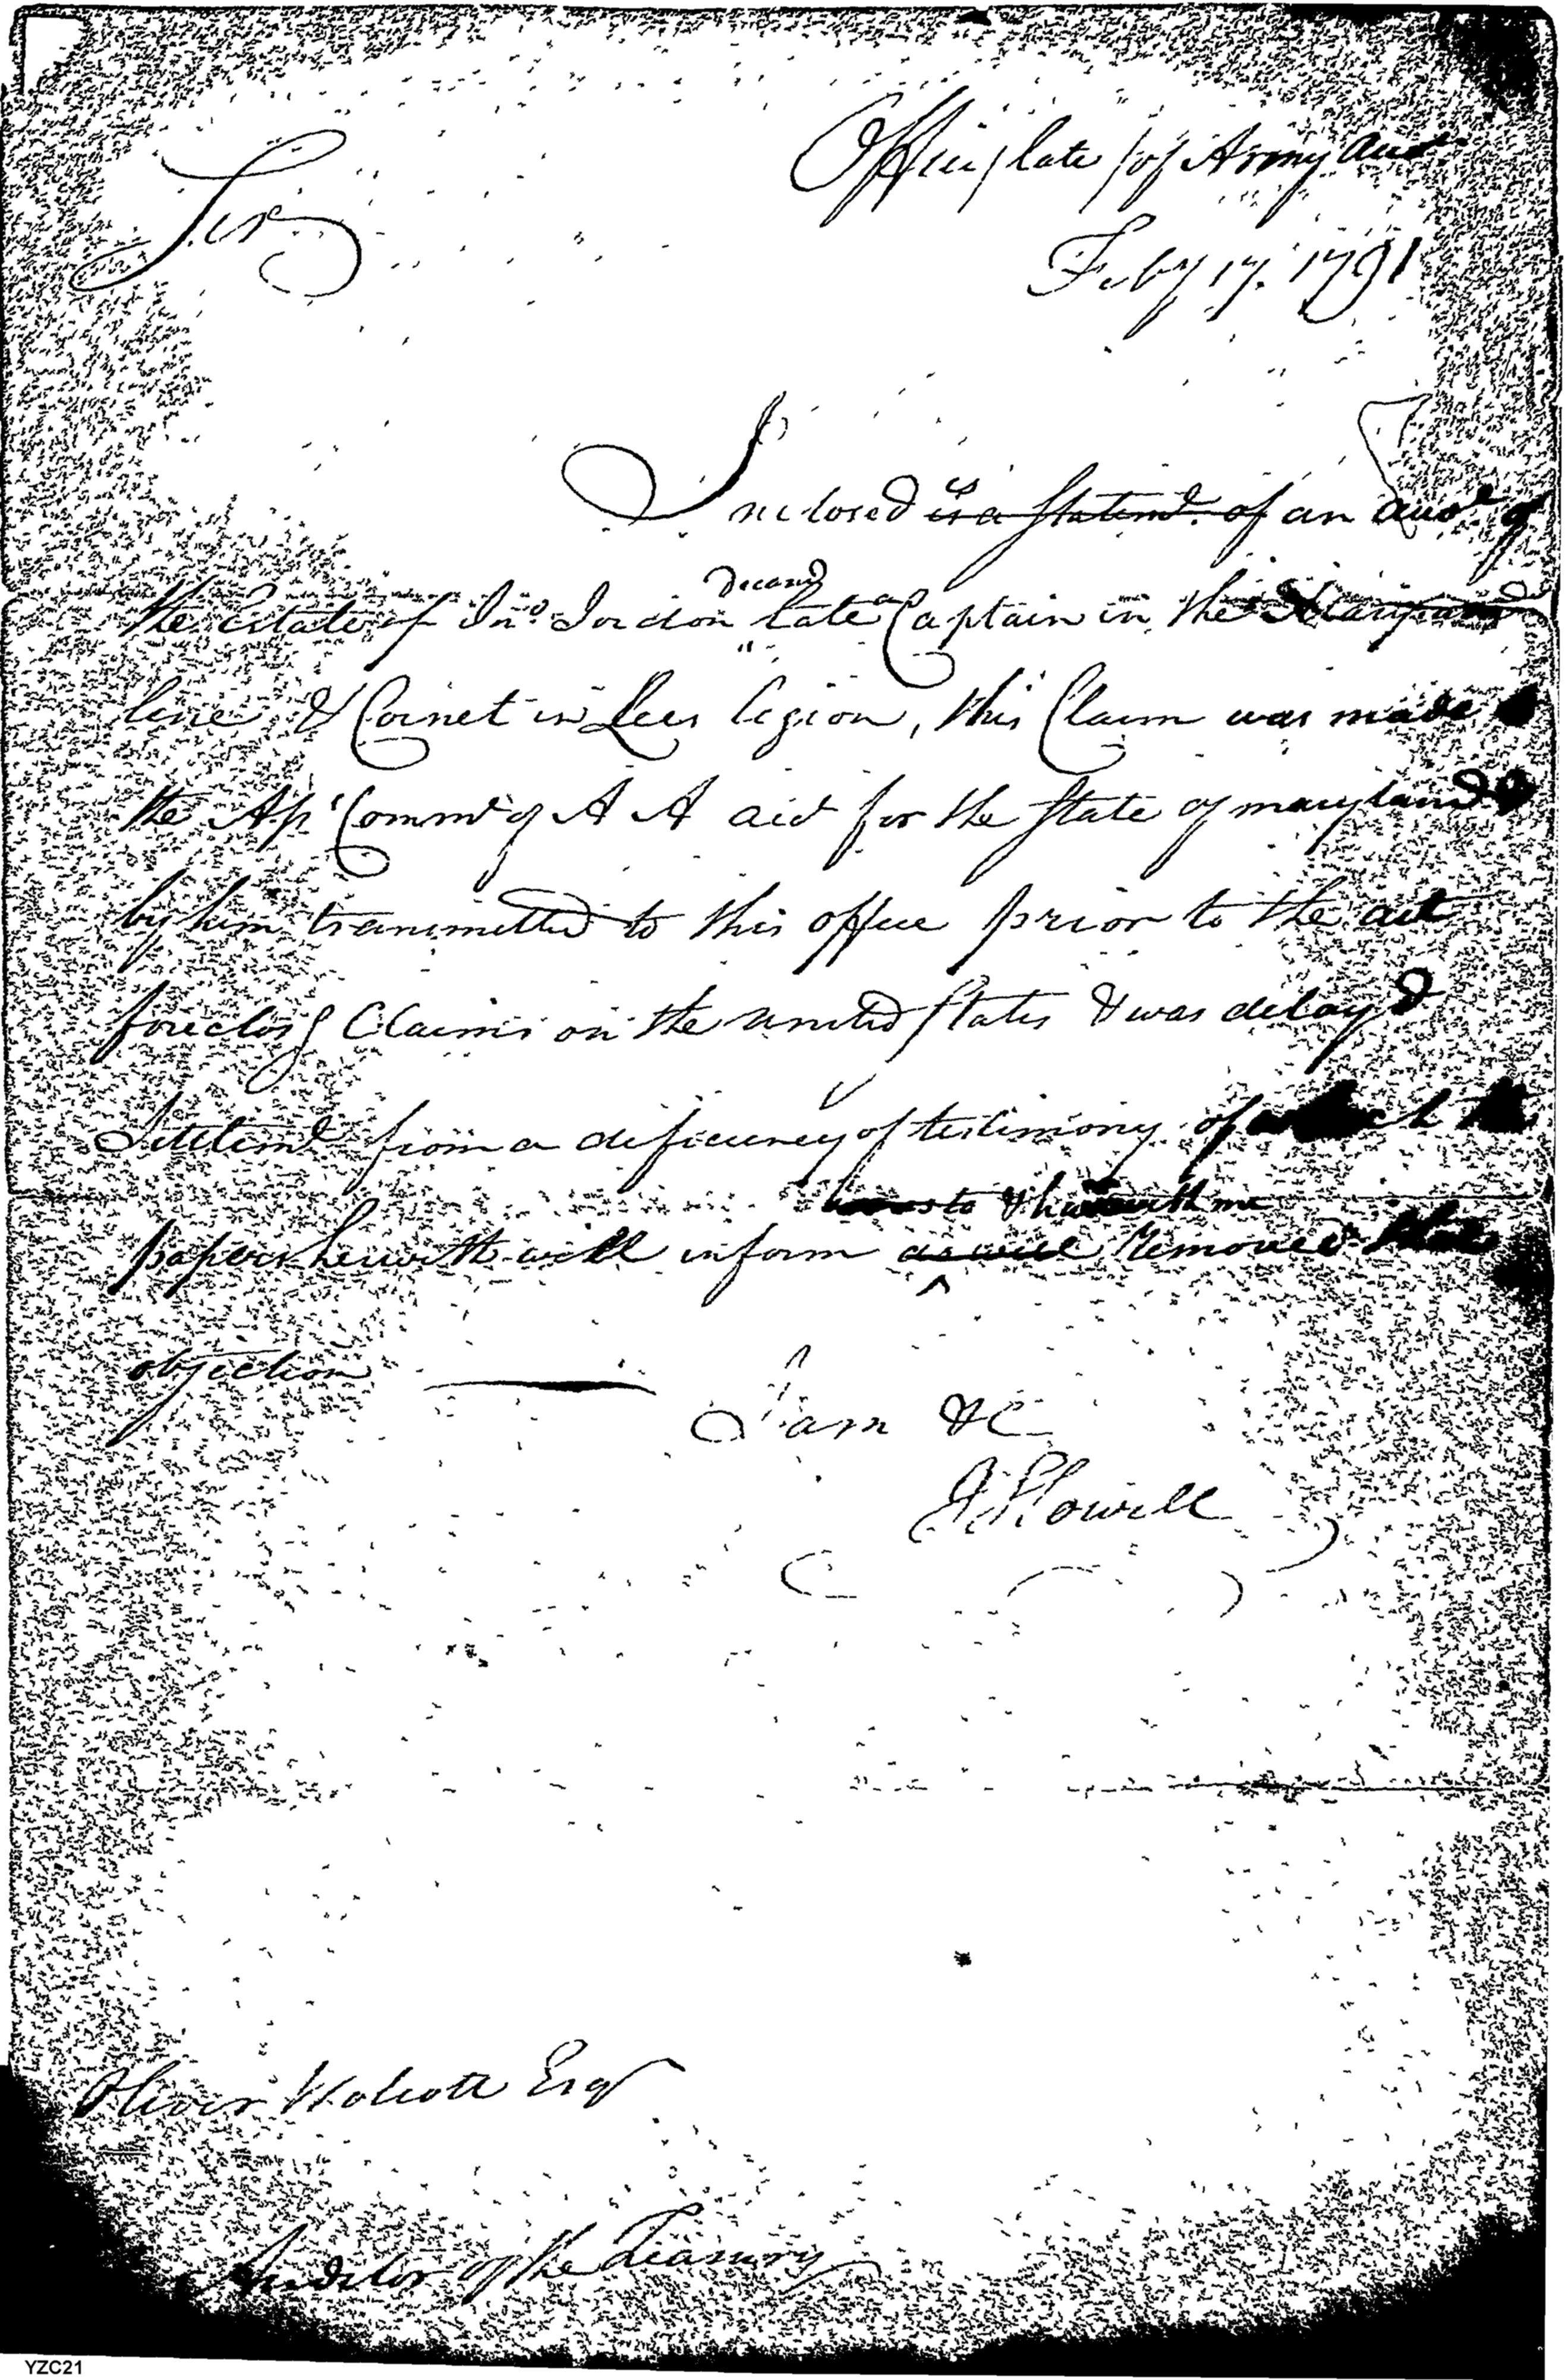 Office (late) of Army Acct
Sir
Feby 17. 1791
Inclosed is a Statemt. of an Acct of
is
the Estate of Jno. Jordon late a Captain in the Maryland
Deceasd
line & Cornet in Lees legion, this Claim was made
the Ap Commr of A A acct for the State of maryland &
by him transmitted to this office prior to the act
foreclosg Claims on the united States & was delayd
Settlemt from a deficiency of testimony of which the
papers herewith will inform as will removed that
objection
I am &c
J Howell
Oliver Wolcott Esqr
Auditor of the Treasury
YZC21